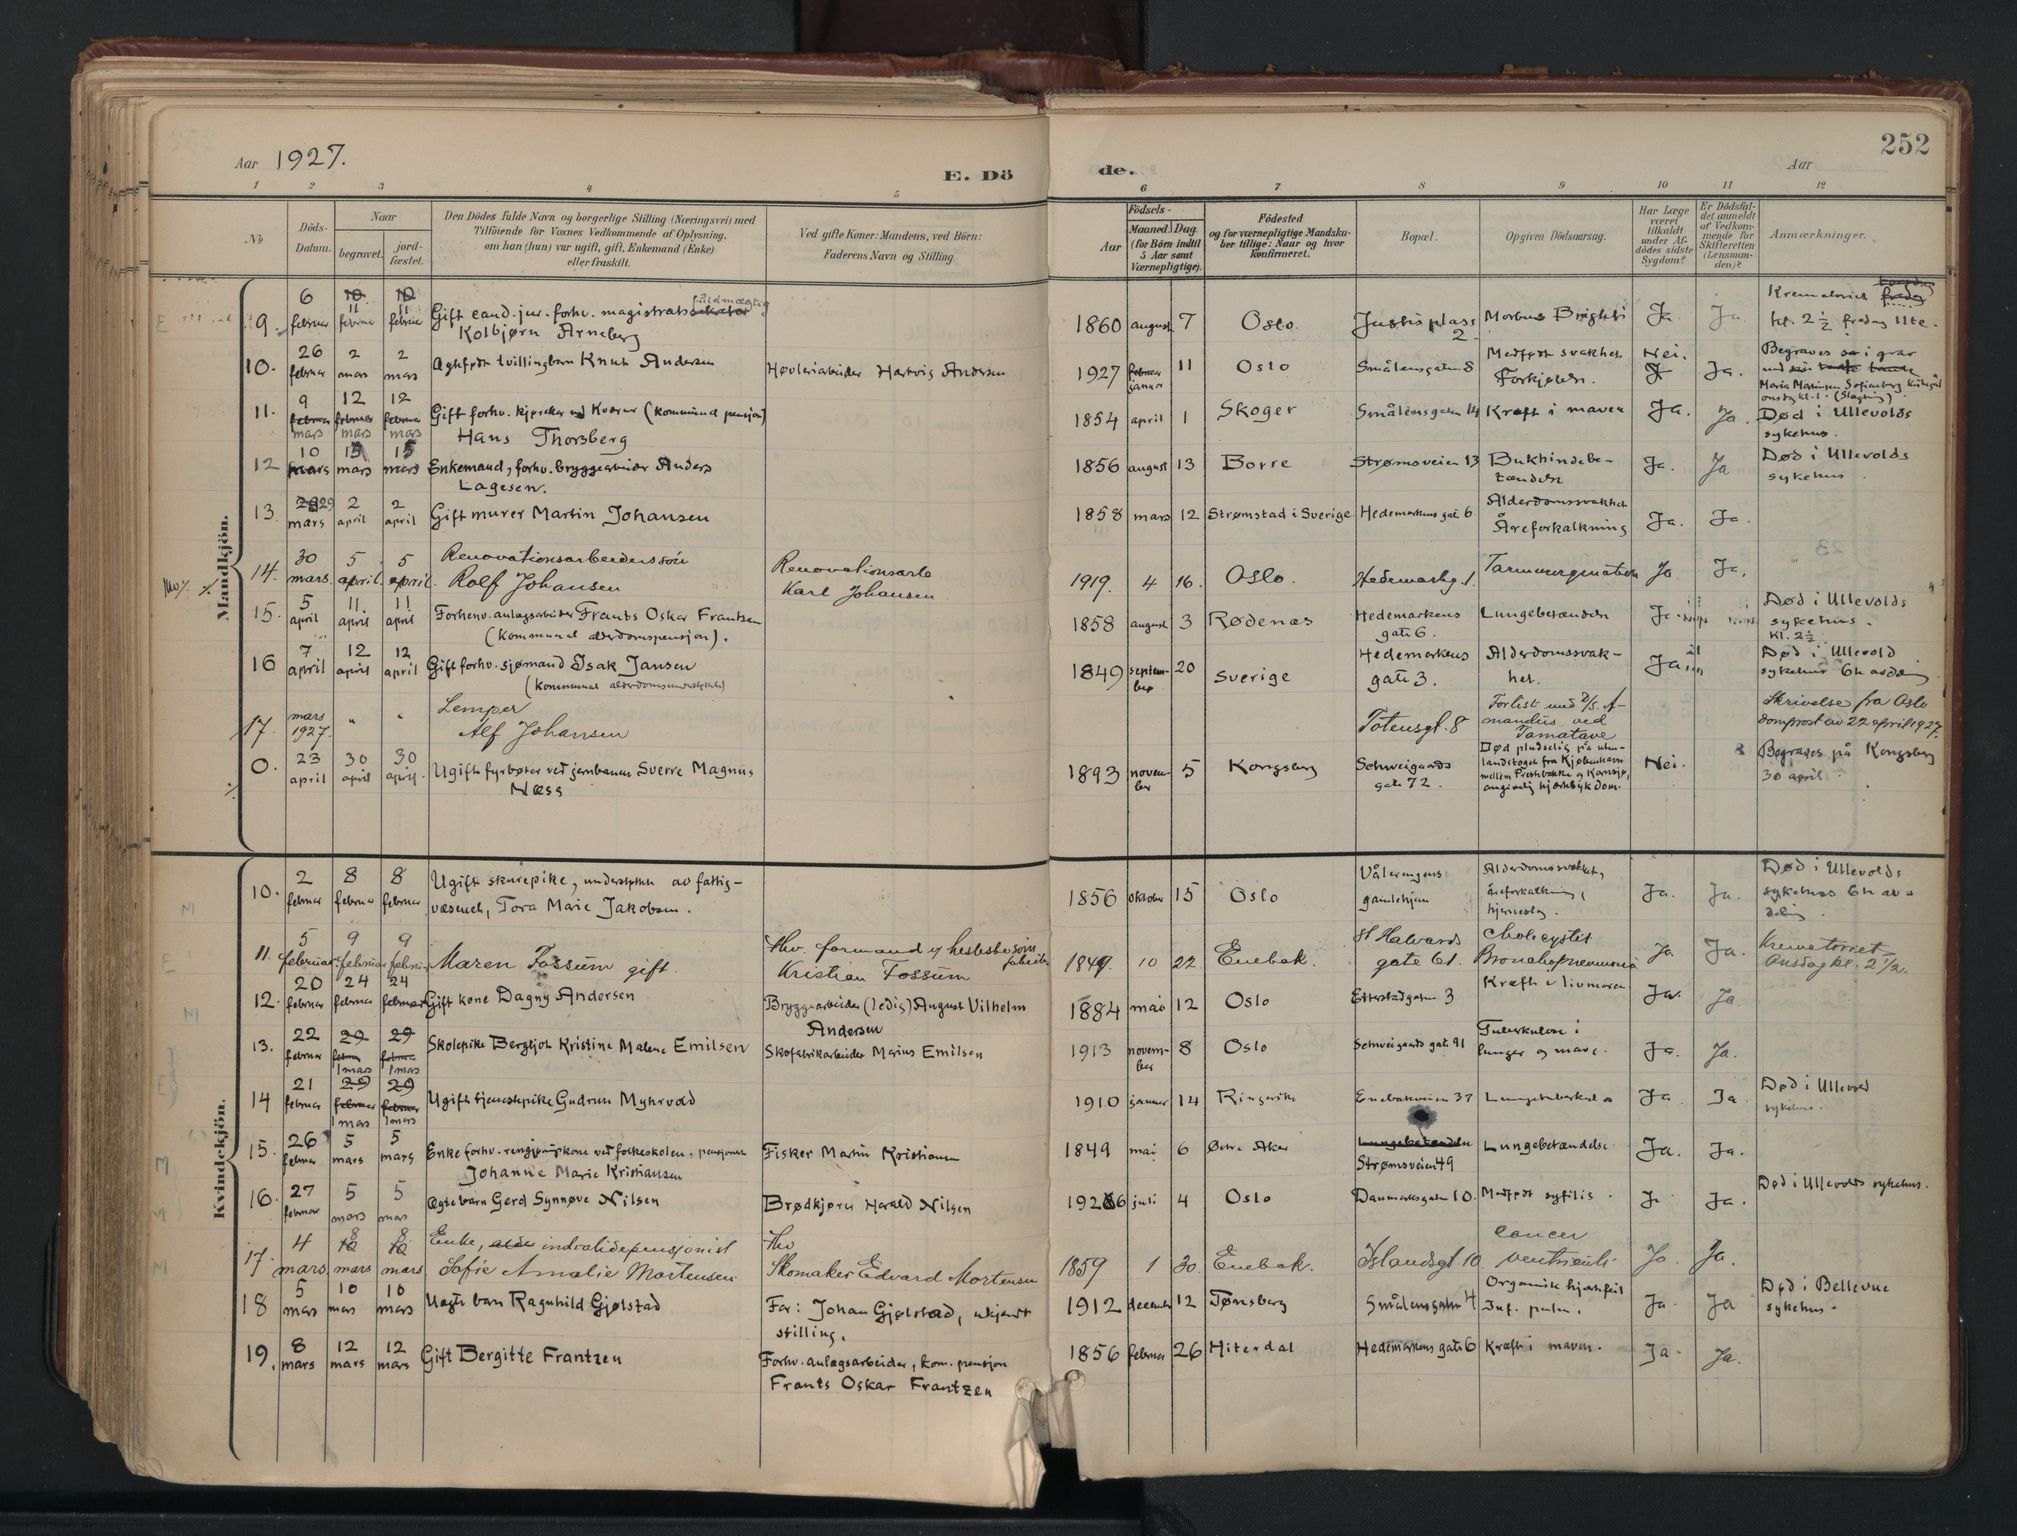 Aar 1927.
E. Dö
de.
Aar
252
1 2 3 4 5 6 7 8 9 10 11 12
No
Döds-
Datum.
Naar
begravet.
jord-
fæstet.
Den Dödes fulde Navn og borgerlige Stilling (Næringsvei) med
Tilföiende for Voxnes Vedkommende af Oplysning,
om han (hun) var ugift, gift, Enkemand (Enke)
eller fraskilt.
Ved gifte Koner: Mandens, ved Börn:
Faderens Navn og Stilling.
Aar
Födsels-
Maaned Dag
(for Börn indtil
5 Aar samt
Værnepligtige).
Födested
og for værnepligtige Mandska-
ber tillige: Naar og hvor
konfirmeret.
Bopæl.
Opgiven Dödsaarsag.
Har Læge
været
tilkaldt
under Af-
dödes sidste
Sygdom?
Er Dödsfal-
det anmeldt
af Vedkom-
mende for
Skifteretten
(Lensman-
den)?
Anmærkninger.
Mandkjön.
9. 6 februar 10 11 februar 10 11 februar Gift cand. jur. forh. magistrats fuldmægtig
Kolbjørn Arneberg
1860 august 7 Oslo. Justisplass 2. Morbus Brightii Ja. Ja. Krematoriet
kl. 2 1/2 fredag 11te.
10. 26 februar 2 mars 2 mars Ogtefødt tvillingbarn Knut Andersen Høvleriarbeider Hartvig Andersen
1927 februar januar 11 Oslo Smålensgaten 8 Medfødt svakhet Forkjølelse. Nei. Ja. Begraves i grav
Maria Marinsen Sofienberg kirkegård
11. 9 februar mars 12 februar mars 12 februar mars Gift forhv. kjører ved Kværner (kommunal pensjon)
Hans Thorsberg
1854 april 1 Skoger Smålensgaten 14 Kræft i maven Ja. Ja. Død i Ullevolds
sykehus.
12 10 mars 15 mars 15 mars Enkemand, forhv. bryggearbeider Anders
Lagesen.
1856 august 13 Borre Strømsveien 13 Bukhindebe-
tændelse Ja. Ja Død i Ullevolds
sykehus.
13. 28 29 mars 2 april 2 april Gift murer Martin Johansen
1858 mars 12 Strømstad i Sverige Hedemarkens gate 6 Alderdomssvakhet
Åreforkalkning Ja. Ja.
14. 30 mars. 5 april. 5 april. Renovationsarbeiderssøn
Rolf Johansen
Renovationsarb.
Karl Johansen.
1919. 4 16. Oslo. Hedemarkg. 1. Ja. Ja.
15. 5 april 11 april 11 april Forhenv. anlægsarbeider Frants Oskar Frantzen
(kommunal alderdomspensjon).
1858 august 3 Rødenæs Hedemarkens
gate 6. Lungebetændelse Ja. Død i Ullevolds
sykehus.
Kl. 2 1/2
16 7 april 12 april 12 april Gift forhv. sjømand Isak Jansen
(kommunal alderdomsunderstøttelse)
1849 septem-
ber 20 Sverige Hedemarkens
gate 3. Alderdomssvak-
het. Ja Død i Ullevold
sykehus 6te avdeling
17. mars 1927. " " Lemper
Alf Johansen
Totensgt. 8 Forlist med D/S. A-
mandus ved
Tamatave Skrivelse fra Oslo
domprost av 22 april 1927.
0. 23 april 30 april 30 april. Ugift fyrbøter ved jernbanen Sverre Magnus
Næss
1893 novem-
ber 5 Kongsberg Schweigaards
gate 72. Død pludselig på uten-
landstoget fra Kjøbenhavn
mellem Prestebakke og Kornsjø,
angivelig hjertesykdom. Nei. Begraves på Kongsberg
30 april.
Kvindekjön.
10. 2 februar 8 februar 8 februar Ugift skurepike, understøttet av fattig-
væsenet, Tora Marie Jakobsen.
1856 oktober 15 Oslo Vålerengens
gamlehjem Alderdomssvakhet,
åreforkalkning,
hjerneslag. Ja. Ja. Død i Ullevolds
sykehus 6te av-
deling.
11. 5 februar 9 februar 9 februar Maren Fossum gift. fhv. formand v/ hesteskosøm
fabrik
Kristian Fossum
1849. 10 22. Enebak. St Halvards
gate 61. Cholecystit
Bronchopneumonia Ja Ja. Krematoriet
Onsdag kl. 2 1/2.
12. 20 februar 24 februar 24 februar Gift kone Dagny Andersen Bryggearbeider (ledig) August Vilhelm
Andersen
1884 mai 12 Oslo Etterstadgaten 3 Kræft i livmoren Ja. Ja.
13. 22 februar 29 februar 1 mars 29 februar 1 mars Skolepike Bergljot Kristine Malene Emilsen Skofabrikarbeider Marius Emilsen
1913 novem-
ber 8 Oslo Schweigaards gate 91 Tuberkulose i
lunger og mave. Ja. Ja.
14 21 februar 29 februar 1 mars 29 februar 1 mars Ugift tjenestepike Gudrun Myhrvold
1910 januar 14 Ringerike Enebakveien 37 Lungetuberkulose Ja. Ja Død i Ullevold
sykehus.
15. 26 februar 5 mars 5 mars Enke forhv. rengjøringskone ved folkeskolen, pensjonert
Johanne Marie Kristiansen
Fisker Martin Kristiansen
1849 mai 6 Østre Aker Lungebetændelse
Strømsveien 49 Lungebetændelse. Ja. Ja.
16. 27 februar 5 mars 5 mars Ogtebarn Gerd Synnøve Nilsen Brødkjører Harald Nilsen
1926 juli 4 Oslo Danmarksgaten 10. Medfødt syfilis. Ja. Ja. Død i Ullevolds sykehus.
17. 4 mars. 10 8 mars 10 8 mars. Enke, invalidepensjonist
Sofie Amalie Mortensen
fhv
Skomaker Edvard Mortensen
1859 1 30. Enebak. Islandsgt. 10 Cancer
ventriculi Ja. Ja.
18 5 mars 10 mars 10 mars Uegte barn Ragnhild Gjølstad Far: Johan Gjølstad, ukjent
stilling.
1912 december 12 Tønsberg Smålensgaten 4 Organisk hjertefeil
Inf. pulm. Ja. Ja Død i Bellevue
sykehus.
19. 8 mars 12 mars 12 mars Gift Bergitte Frantzen Forhv. anlægsarbeider, kom. pensjon
Frants Oskar Frantzen
1856 februar 26 Hiterdal Hedemarkens gate 6 Kræft i maven. Ja. Ja.